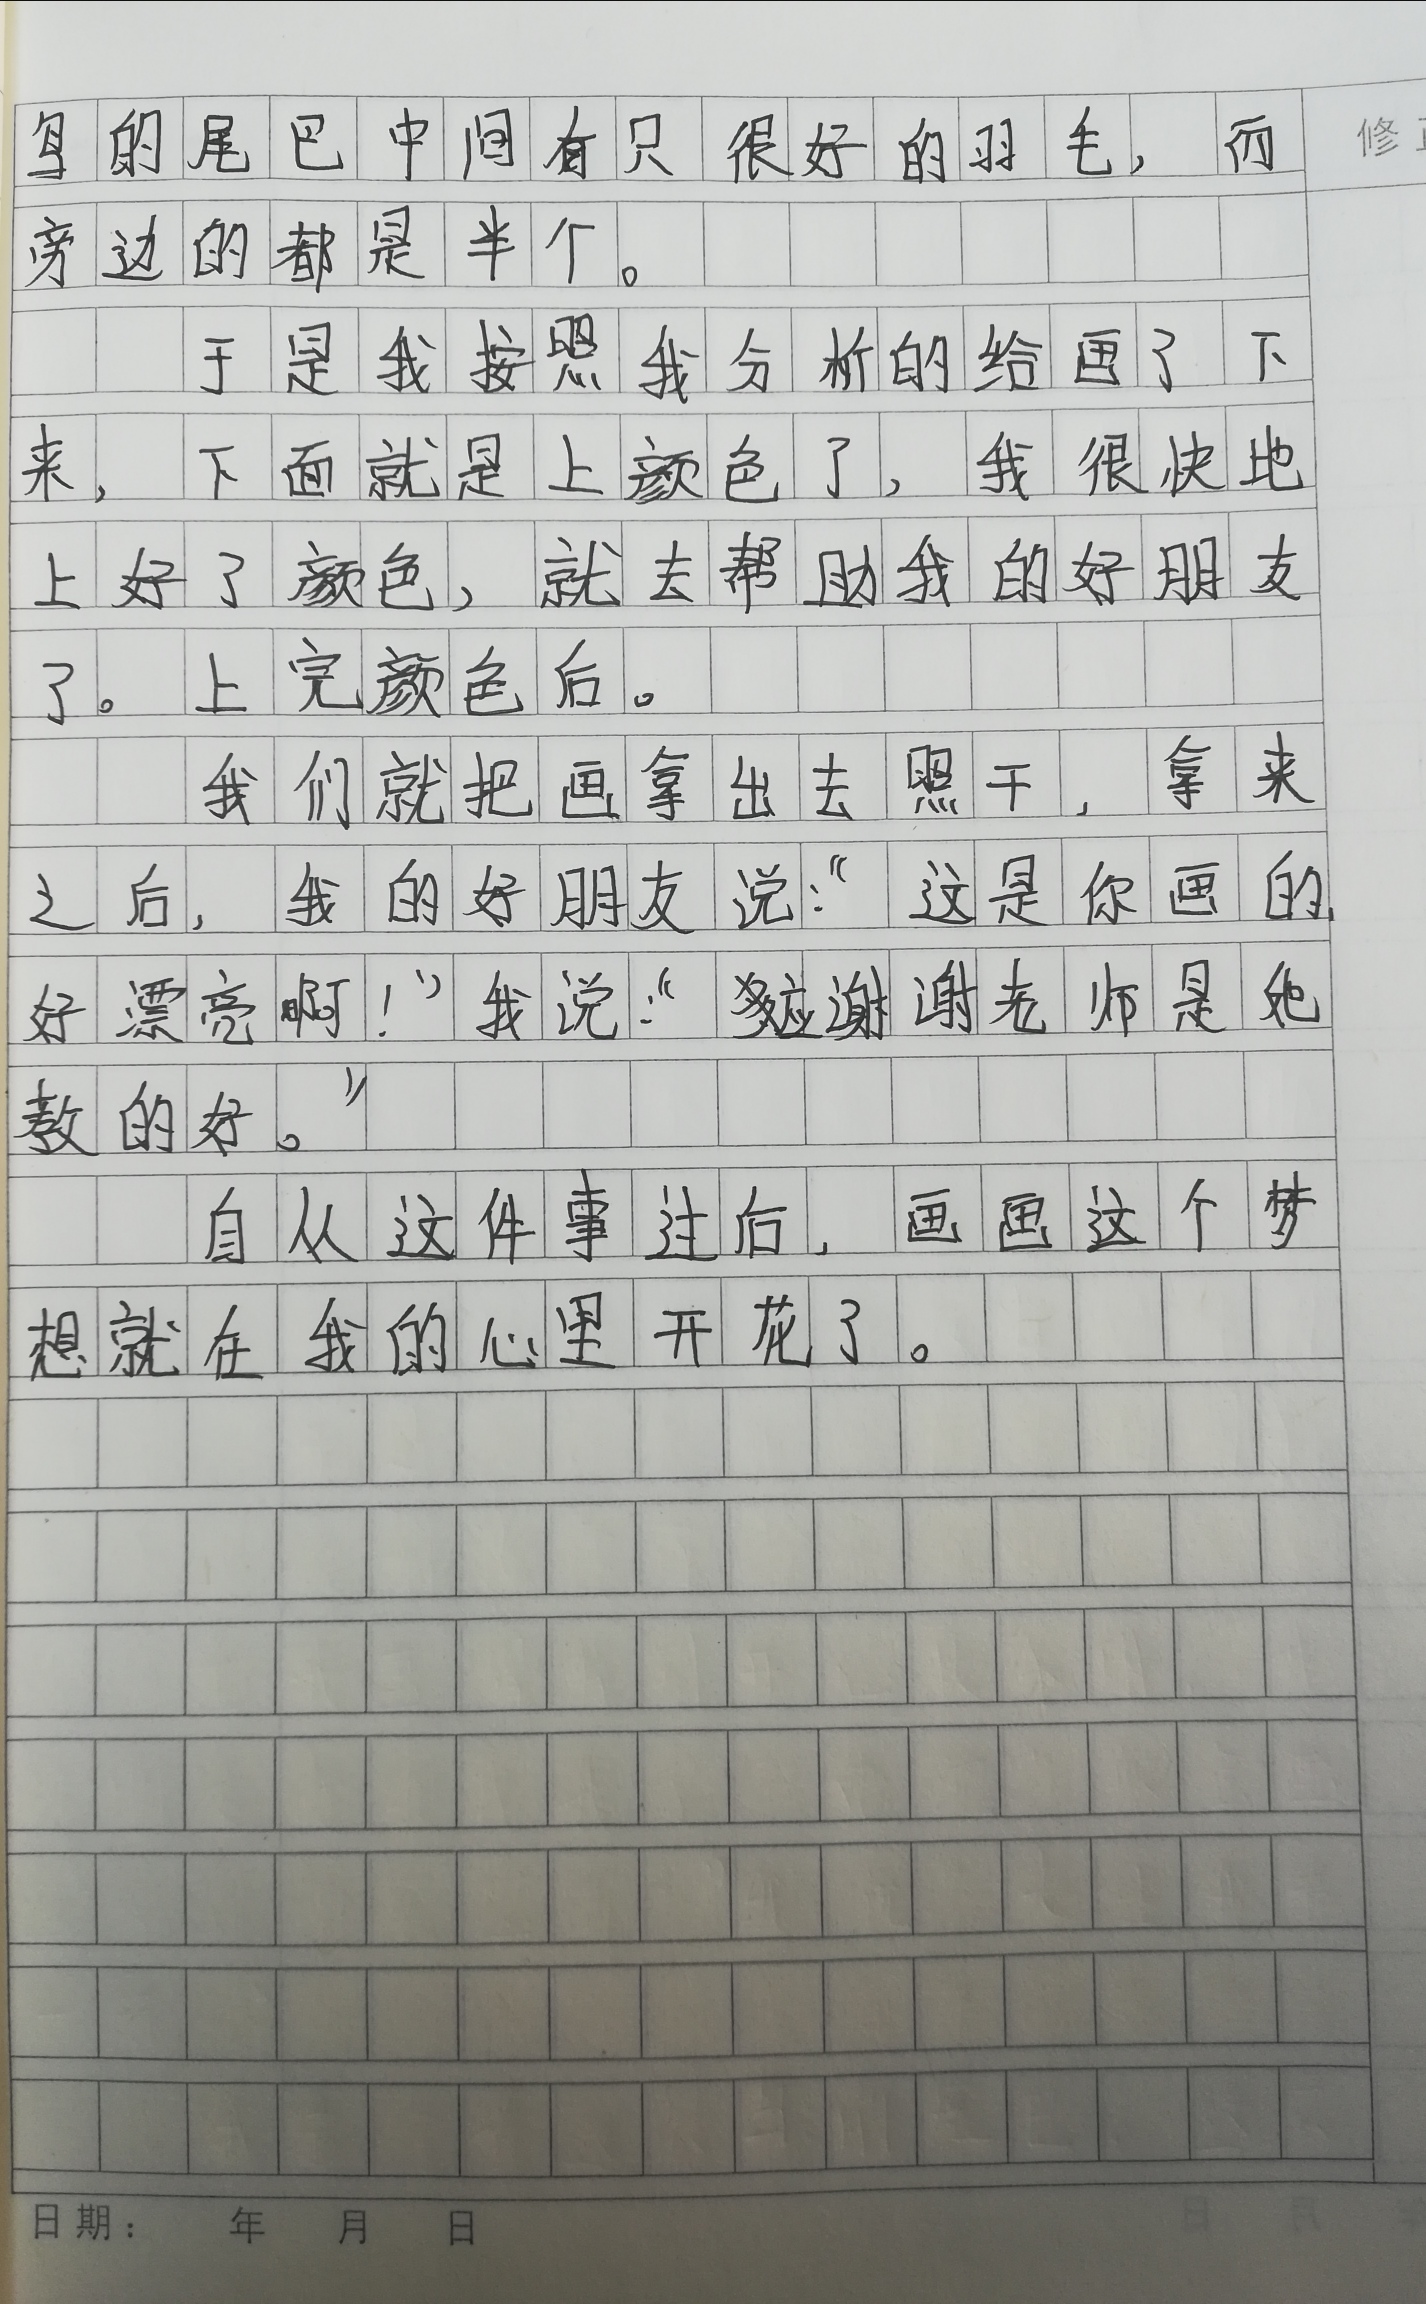 鸟的尾巴中间有只很好的羽毛，而
修
旁边的都是半个。
于是我按照我分析的给画了下
来，下面就是上颜色了，我很快地
上好了颜色，就去帮助我的好朋友
了。上完颜色后。
我们就把画拿出去照干，拿来
之后，我的好朋友说：“这是你画的，
好漂亮啊！”我说：“应谢谢老师是她
教的好。”
自从这件事过后，画画这个梦
想就在我的心里开花了。
日期： 年 月 日